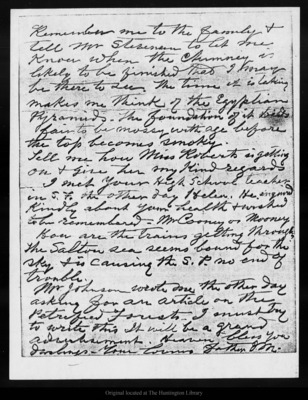 Remember me to the family &
tell Mr Stevenson to let me
Know when the Chimney is
likely to be finished that I may
be there to see. The time it is taking
makes me think of the Egyptian
Pyramids. The foundation of it bids
fair to be mossy with age before
the top becomes smoky.
Tell me how Miss Roberts is getting
on & give her my Kind regards
I met your High School teacher
in S.F. the other day Helen. He enquired
kindly about your health & wished
to be remembered – McCooney or Mooney
How are the trains getting through
the Salton sea seems bound for the
sky & is causing the S.P. no end of
trouble.
Mr Johnson wrote me the other day
asking for an article on the
Petrified Forests. I must try
to write this. It will be a grand
advertisement. Heaven bless you
Darlings – Your loving Father J.M.
Original located at The Huntington Library